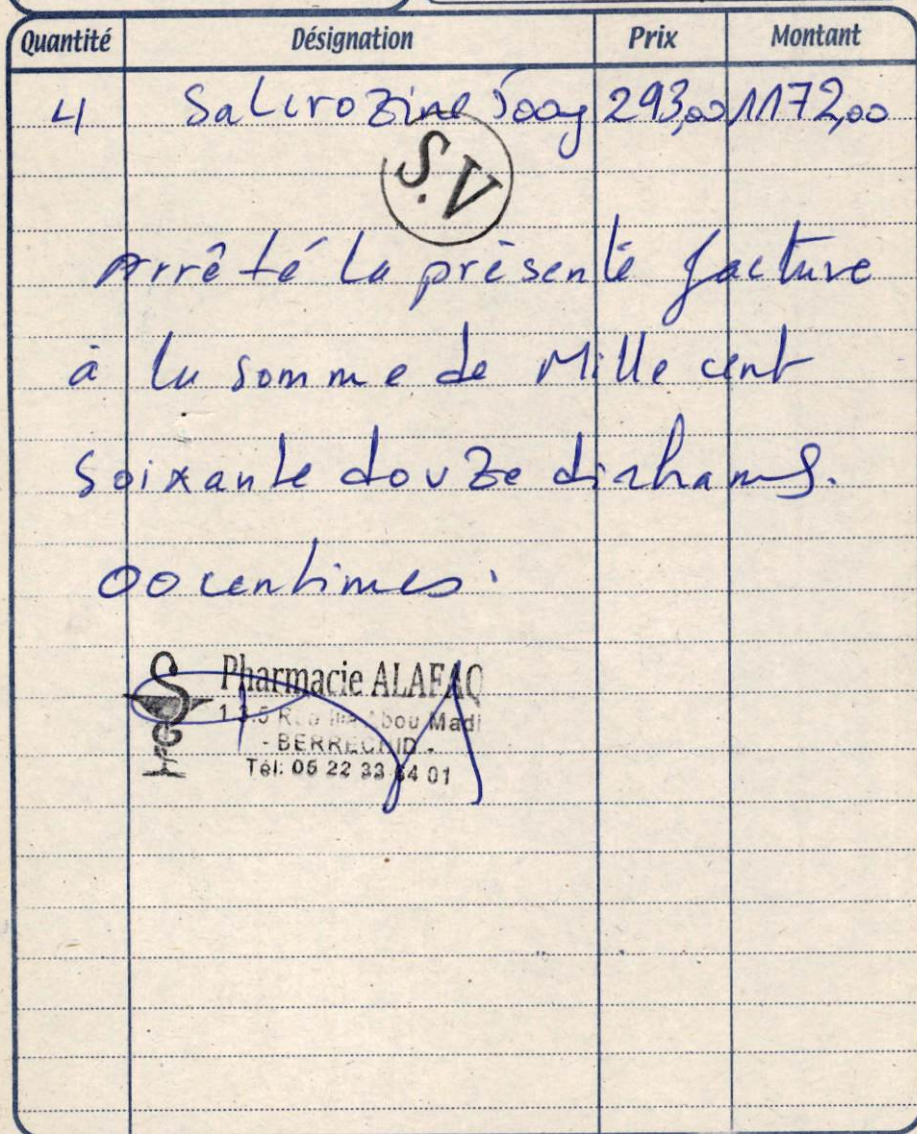 Quantité Désignation Prix Montant
4 Salcrozine 500g 293,00 1172,00
S.V
Arrêté la présente facture
à la somme de Mille cent
Soixante douze dirhams.
00 centimes.
Pharmacie ALAFAQ
1.3.5 Rue Ilia Abou Madi
- BERRECHID -
Tél: 05 22 33 64 01